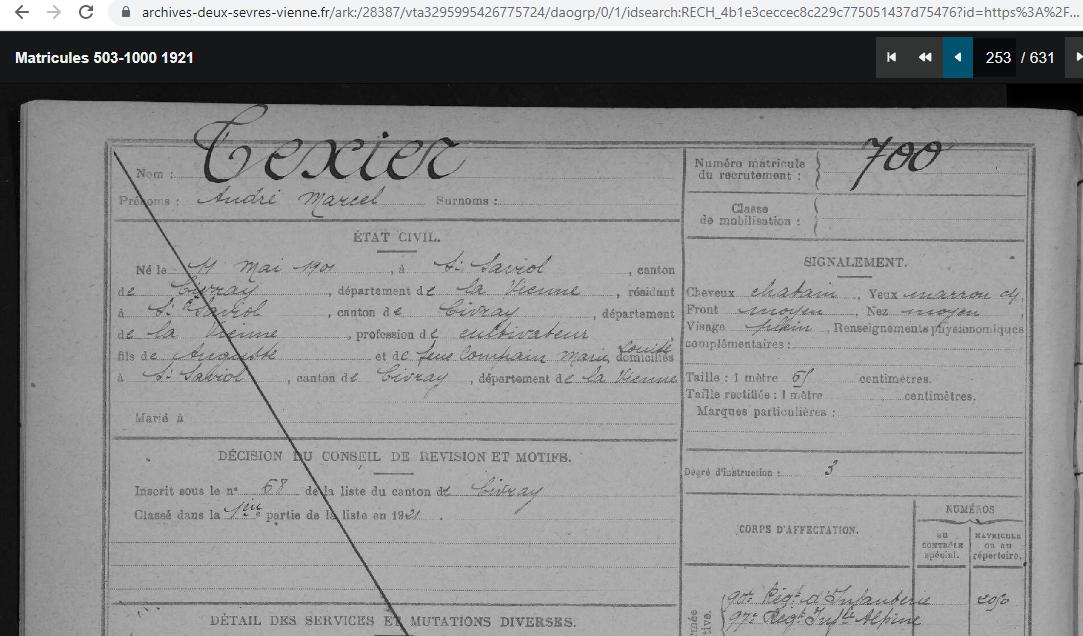 archives-deux-sevres-vienne.fr/ark:/28387/vta3295995426775724/daogrp/0/1/idsearch:RECH_4b1e3ceccec8c229c775051437d75476?id=https%3A%2F...
Matricules 503-1000 1921
253 / 631
Nom : Texier
Prénoms : André Marcel Surnoms :
ÉTAT CIVIL.
Né le 11 Mai 1901, à St Saviol, canton
de Civray, département de la Vienne, résidant
à St Saviol, canton de Civray, département
de la Vienne, profession de cultivateur
fils de Auguste et de feue Compain Marie Louise domiciliés
à St Saviol, canton de Civray, département de la Vienne
Marié à
DÉCISION DU CONSEIL DE REVISION ET MOTIFS.
Inscrit sous le n° 68 de la liste du canton de Civray
Classé dans la 1ère partie de la liste en 1921.
DÉTAIL DES SERVICES ET MUTATIONS DIVERSES.
Numéro matricule
du recrutement : 700
Classe
de mobilisation :
SIGNALEMENT.
Cheveux chatain, Yeux marron
Front moyen, Nez moyen
Visage plein, Renseignements physionomiques
complémentaires :
Taille : 1 mètre 65 centimètres.
Taille rectifiée : 1 mètre centimètres.
Marques particulières :
Degré d'instruction : 3
CORPS D'AFFECTATION.
NUMÉROS
au
CONTRÔLE
spécial.
MATRICULE
ou au
répertoire.
90e Régt d'Infanterie
97e Régt Infie Alpine